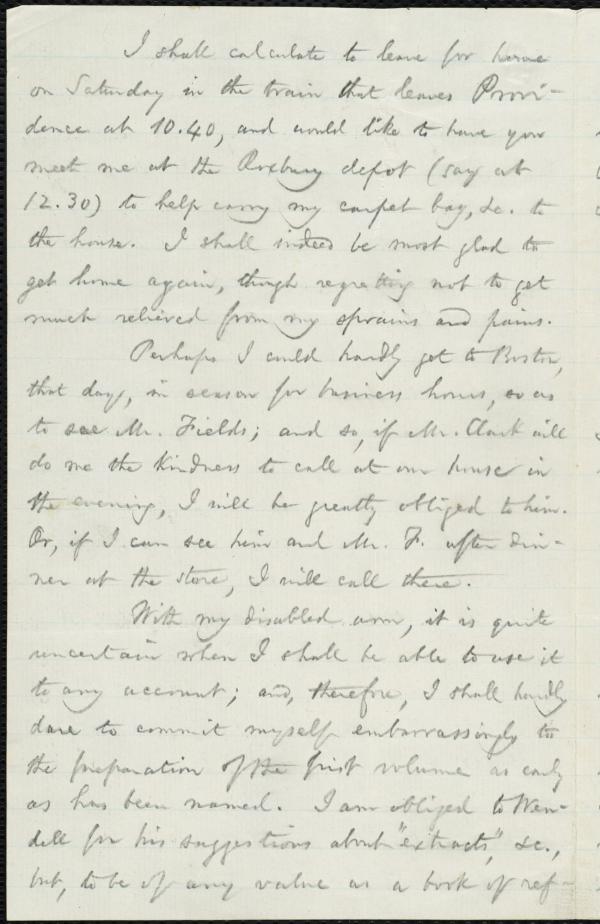 I shall calculate to leave for home
on Saturday in the train that leaves Provi-
dence at 10.40, and would like to have you
meet me at the Roxbury depot (say at
12.30) to help carry my carpet bag, &c. to
the house. I shall indeed be most glad to
get home again, though regretting not to get
much relieved from my sprains and pains.
Perhaps I could hardly get to Boston,
that day, in season for business hours, so as
to see Mr. Fields; and so, if Mr. Clark will
do me the kindness to call at our house in
the evening, I will be greatly obliged to him.
Or, if I can see him and Mr. F. after din-
ner at the store, I will call there.
With my disabled arm, it is quite
uncertain when I shall be able to use it
to any account; and, therefore, I shall hardly
dare to commit myself embarrassingly to
the preparation of the first volume as early
as has been named. I am obliged to Wen-
dell for his suggestions about "extracts," &c.,
but, to be of any value as a book of ref-